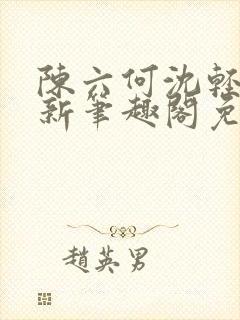 陳六何沈輕
新筆趣閣免
趙英男